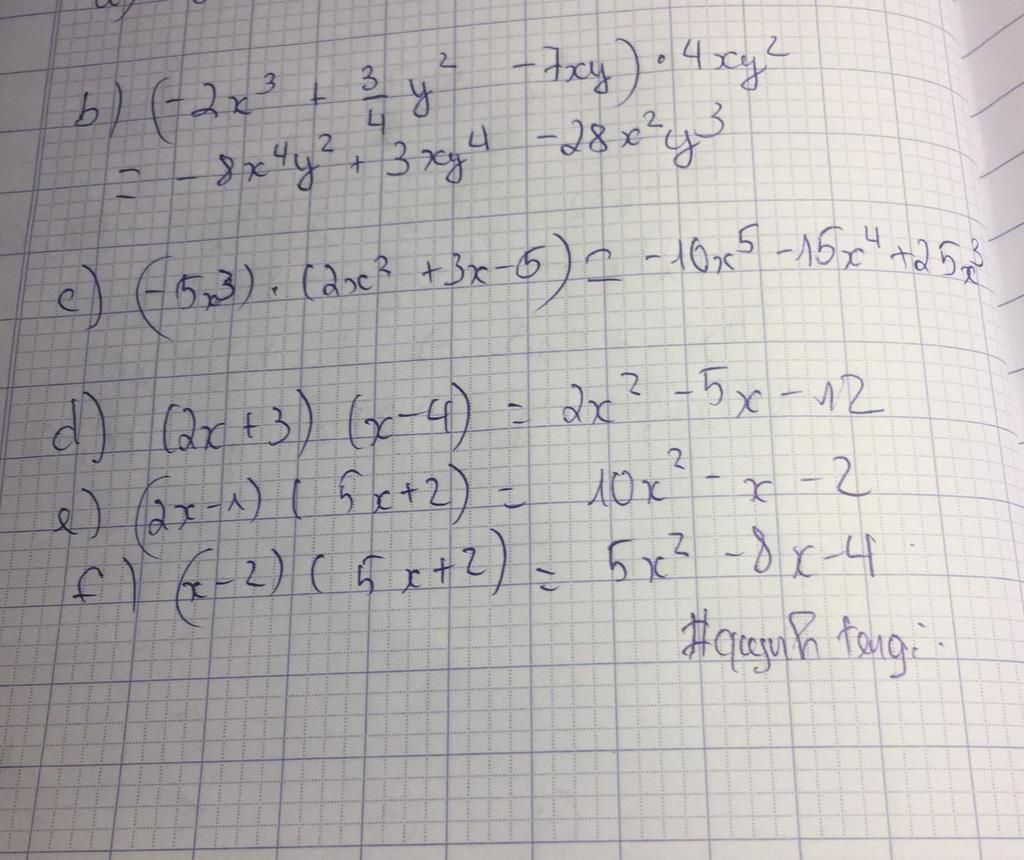 b) (-2x³ + 3/4 y² - 7xy) · 4xy²
= - 8x⁴y² + 3xy⁴ - 28x²y³
c) (-5x³) · (2x² + 3x - 5) = -10x⁵ - 15x⁴ + 25x³
d) (2x + 3) (x - 4) = 2x² - 5x - 12
e) (2x - 1) ( 5x + 2) = 10x² - x - 2
f) (x - 2) ( 5x + 2) = 5x² - 8x - 4